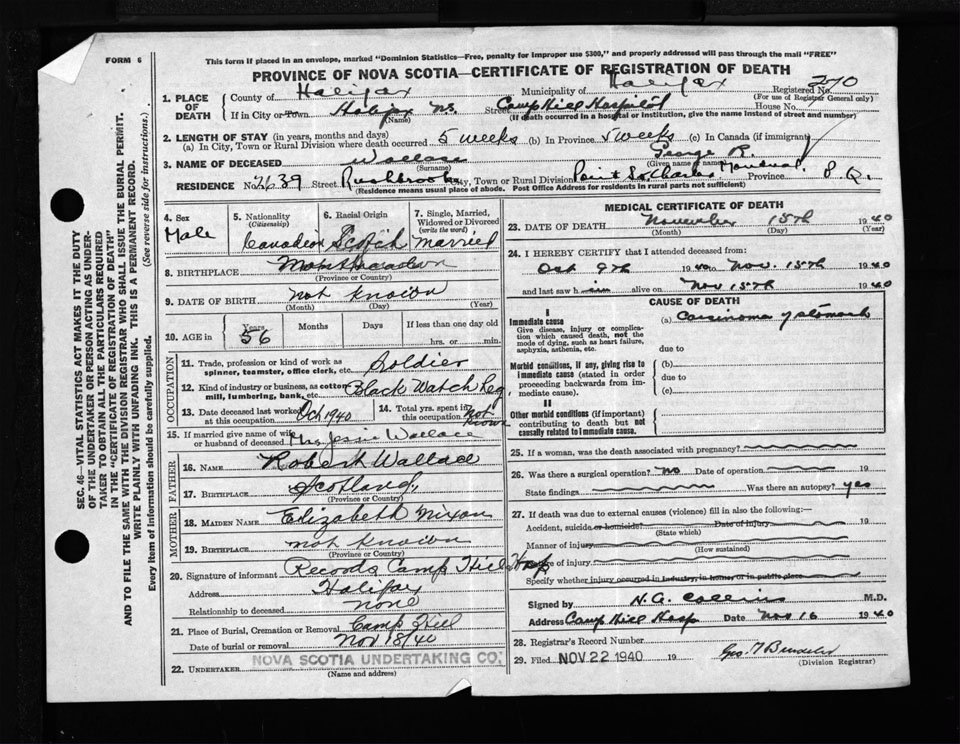 FORM 6
This form if placed in an envelope, marked "Dominion Statistics—Free, penalty for improper use $300," and properly addressed will pass through the mail "FREE"
PROVINCE OF NOVA SCOTIA—CERTIFICATE OF REGISTRATION OF DEATH
1. PLACE OF DEATH
County of Halifax Municipality of Halifax Registered No. 270
(For use of Registrar General only)
If in City or Town Halifax N.S. Street Camp Hill Hospital House No.
(Name) (If death occurred in a hospital or institution, give the name instead of street and number)
2. LENGTH OF STAY (in years, months and days)
(a) In City, Town or Rural Division where death occurred 5 weeks (b) In Province 5 weeks (c) In Canada (if immigrant)
3. NAME OF DECEASED Wallace George R.
(Surname) (Given name or names)
RESIDENCE No. 2639 Street Rushbrooke City, Town or Rural Division Point St. Charles Montreal Province P.Q.
(Residence means usual place of abode. Post Office Address for residents in rural parts not sufficient)
4. Sex Male
5. Nationality (Citizenship) Canadian
6. Racial Origin Scotch
7. Single, Married, Widowed or Divorced (write the word) Married
8. BIRTHPLACE
(Province or Country)
9. DATE OF BIRTH not known
(Month) (Day) (Year)
10. AGE in Years 56 Months Days If less than one day old
hrs. or min.
OCCUPATION
11. Trade, profession or kind of work as spinner, teamster, office clerk, etc. Soldier
12. Kind of industry or business, as cotton mill, lumbering, bank, etc. Black Watch Reg.
13. Date deceased last worked at this occupation Oct 1940
14. Total yrs. spent in this occupation not known
15. If married give name of wife or husband of deceased Mrs Jessie Wallace
FATHER
16. NAME Robert Wallace
17. BIRTHPLACE Scotland
(Province or Country)
MOTHER
18. MAIDEN NAME Elizabeth Nixon
19. BIRTHPLACE not known
(Province or Country)
20. Signature of informant Records Camp Hill Hosp
Address Halifax
Relationship to deceased none
21. Place of Burial, Cremation or Removal Camp Hill
Date of burial or removal Nov 18/40
22. UNDERTAKER NOVA SCOTIA UNDERTAKING CO.
(Name and address)
MEDICAL CERTIFICATE OF DEATH
23. DATE OF DEATH November 15th 1940
(Month) (Day) (Year)
24. I HEREBY CERTIFY that I attended deceased from:
Oct 9th 1940 to Nov. 15th 1940
and last saw h im alive on Nov 15th 1940
CAUSE OF DEATH
I
Immediate cause
Give disease, injury or complication which caused death, not the mode of dying, such as heart failure, asphyxia, asthenia, etc.
(a) Carcinoma of stomach
due to
Morbid conditions, if any, giving rise to immediate cause (stated in order proceeding backwards from immediate cause).
(b)
due to
(c)
II
Other morbid conditions (if important) contributing to death but not causally related to immediate cause.
25. If a woman, was the death associated with pregnancy?
26. Was there a surgical operation? no Date of operation 19
State findings Was there an autopsy? yes
27. If death was due to external causes (violence) fill in also the following:—
Accident, suicide or homicide? Date of injury 19
(State which)
Manner of injury
(How sustained)
Nature of injury
Specify whether injury occurred in industry, in home or in public place
Signed by N.G. Collins M.D.
Address Camp Hill Hosp Date Nov 16 1940
28. Registrar's Record Number
29. Filed NOV 22 1940 19
(Division Registrar)
SEC. 46—VITAL STATISTICS ACT MAKES IT THE DUTY
OF THE UNDERTAKER OR PERSON ACTING AS UNDER-
TAKER TO OBTAIN ALL THE PARTICULARS REQUIRED
IN THE "CERTIFICATE OF REGISTRATION OF DEATH"
AND TO FILE THE SAME WITH THE DIVISION REGISTRAR WHO SHALL ISSUE THE BURIAL PERMIT.
WRITE PLAINLY WITH UNFADING INK. THIS IS A PERMANENT RECORD.
Every item of information should be carefully supplied. (See reverse side for instructions.)